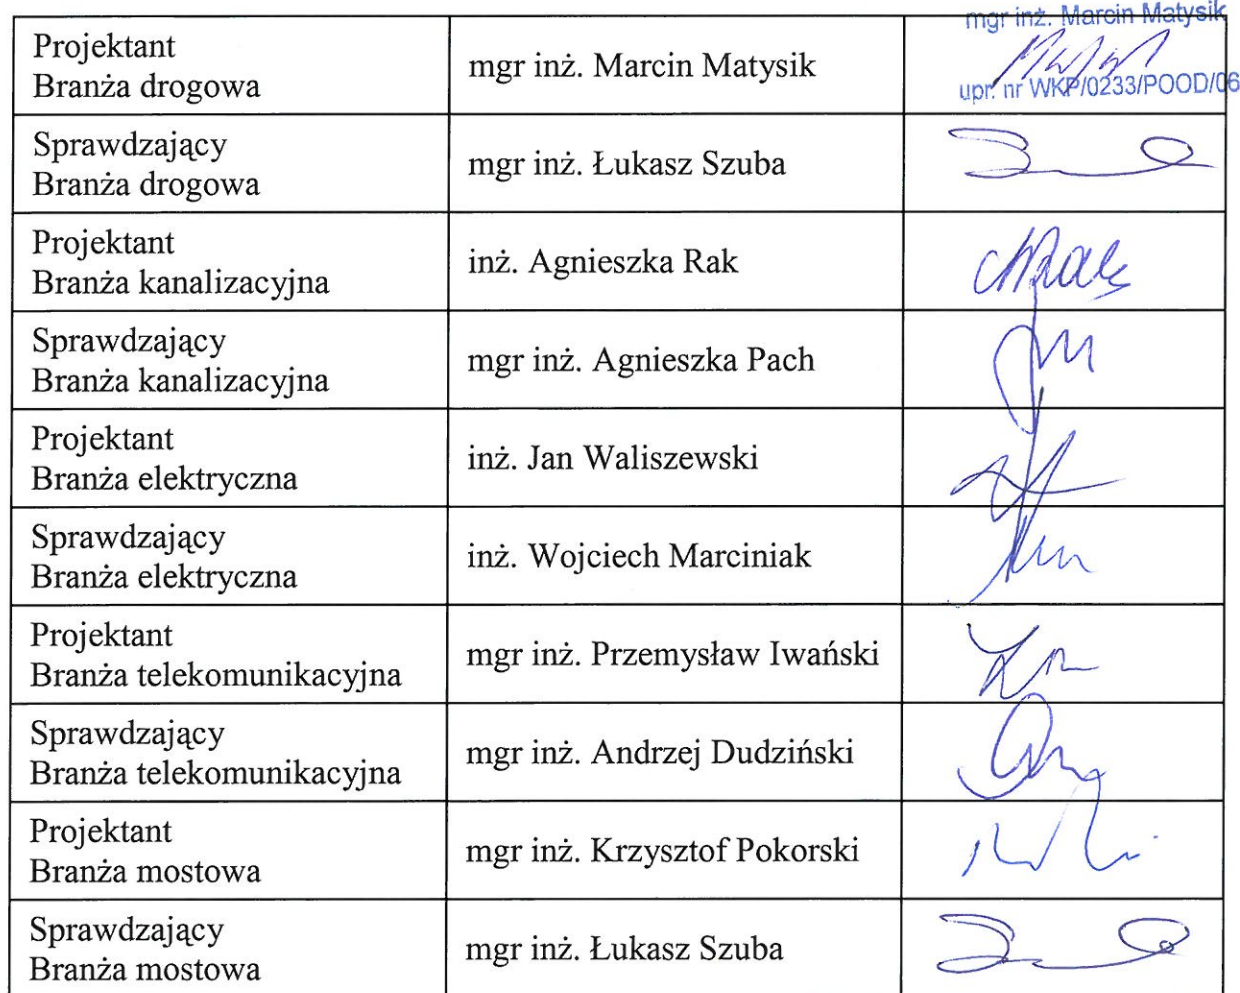 mgr inż. Marcin Matysik
Projektant
Branża drogowa
mgr inż. Marcin Matysik
upr. nr WKP/0233/POOD/06
Sprawdzający
Branża drogowa
mgr inż. Łukasz Szuba
Projektant
Branża kanalizacyjna
inż. Agnieszka Rak
Sprawdzający
Branża kanalizacyjna
mgr inż. Agnieszka Pach
Projektant
Branża elektryczna
inż. Jan Waliszewski
Sprawdzający
Branża elektryczna
inż. Wojciech Marciniak
Projektant
Branża telekomunikacyjna
mgr inż. Przemysław Iwański
Sprawdzający
Branża telekomunikacyjna
mgr inż. Andrzej Dudziński
Projektant
Branża mostowa
mgr inż. Krzysztof Pokorski
Sprawdzający
Branża mostowa
mgr inż. Łukasz Szuba